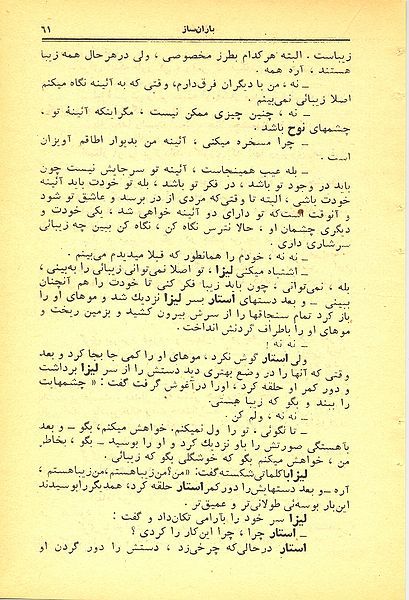 باران‌ساز ۶۱
زیباست . البته هرکدام بطرز مخصوصی ، ولی درهرحال همه زیبا
هستند ، آره همه .
ــ نه ، من با دیگران فرق‌دارم، وقتی که به آئینه نگاه میکنم
اصلا زیبائی نمی‌بینم .
ــ نه ، چنین چیزی ممکن نیست ، مگراینکه آئینهٔ تو ،
چشمهای نوح باشد .
ــ چرا مسخره میکنی ، آئینه من بدیوار اطاقم آویزان
است .
ــ بله عیب همینجاست ، آئینه تو سرجایش نیست چون
باید در وجود تو باشد ، در فکر تو باشد ، بله تو خودت باید آئینه
خودت باشی ، البته تا وقتی‌که مردی از در برسد و عاشق تو شود
و آنوقت است‌که تو دارای دو آئینه خواهی شد ، یکی خودت و
دیگری چشمان او ، حالا نترس نگاه کن ، نگاه کن ببین چه زیبائی
سرشاری داری .
ــ نه ، نه ، خودم را همانطور که قبلا میدیدم می‌بینم .
ــ اشتباه میکنی لیزا ، تو اصلا نمی‌توانی زیبائی را به‌بینی ،
بله ، نمی‌توانی ، چون باید زیبا فکر کنی تا خودت را هم آنچنان
ببینی ــ و بعد دستهای استار بسر لیزا نزدیك شد و موهای او را
باز کرد تمام سنجاقها را از سرش بیرون کشید و بزمین ریخت و
موهای او را باطراف گردنش انداخت .
ــ نه نه !
ولی استار گوش نکرد ، موهای او را کمی جا بجا کرد و بعد
وقتی که آنها را در وضع بهتری دید دستش را از سر لیزا برداشت
و دور کمر او حلقه کرد ، اورا درآغوش گرفت گفت : « چشمهایت
را ببند و بگو که زیبا هستی.
ــ نه نه ، ولم کن .
ــ تا نگوئی ، تو را ول نمیکنم. خواهش میکنم، بگو ــ و بعد
بآهستگی صورتش را باو نزدیك کرد و او را بوسید ــ بگو ، بخاطر
من ، خواهش میکنم بگو که خوشگلی بگو که زیبائی .
لیزا باکلماتی‌شکسته‌گفت: «من؟من‌زیباهستم،من‌زیباهستم ،
آره ــ و بعد دستهایش‌را دورکمر استار حلقه کرد، همدیگررابوسیدند
این‌بار بوسه‌ئی طولانی‌تر و عمیق‌تر .
لیزا سر خود را بآرامی تکان‌داد و گفت :
ــ استار چرا ، چرا این‌کار را کردی ؟
استار درحالی‌که چرخی‌زد ، دستش را دور گردن او